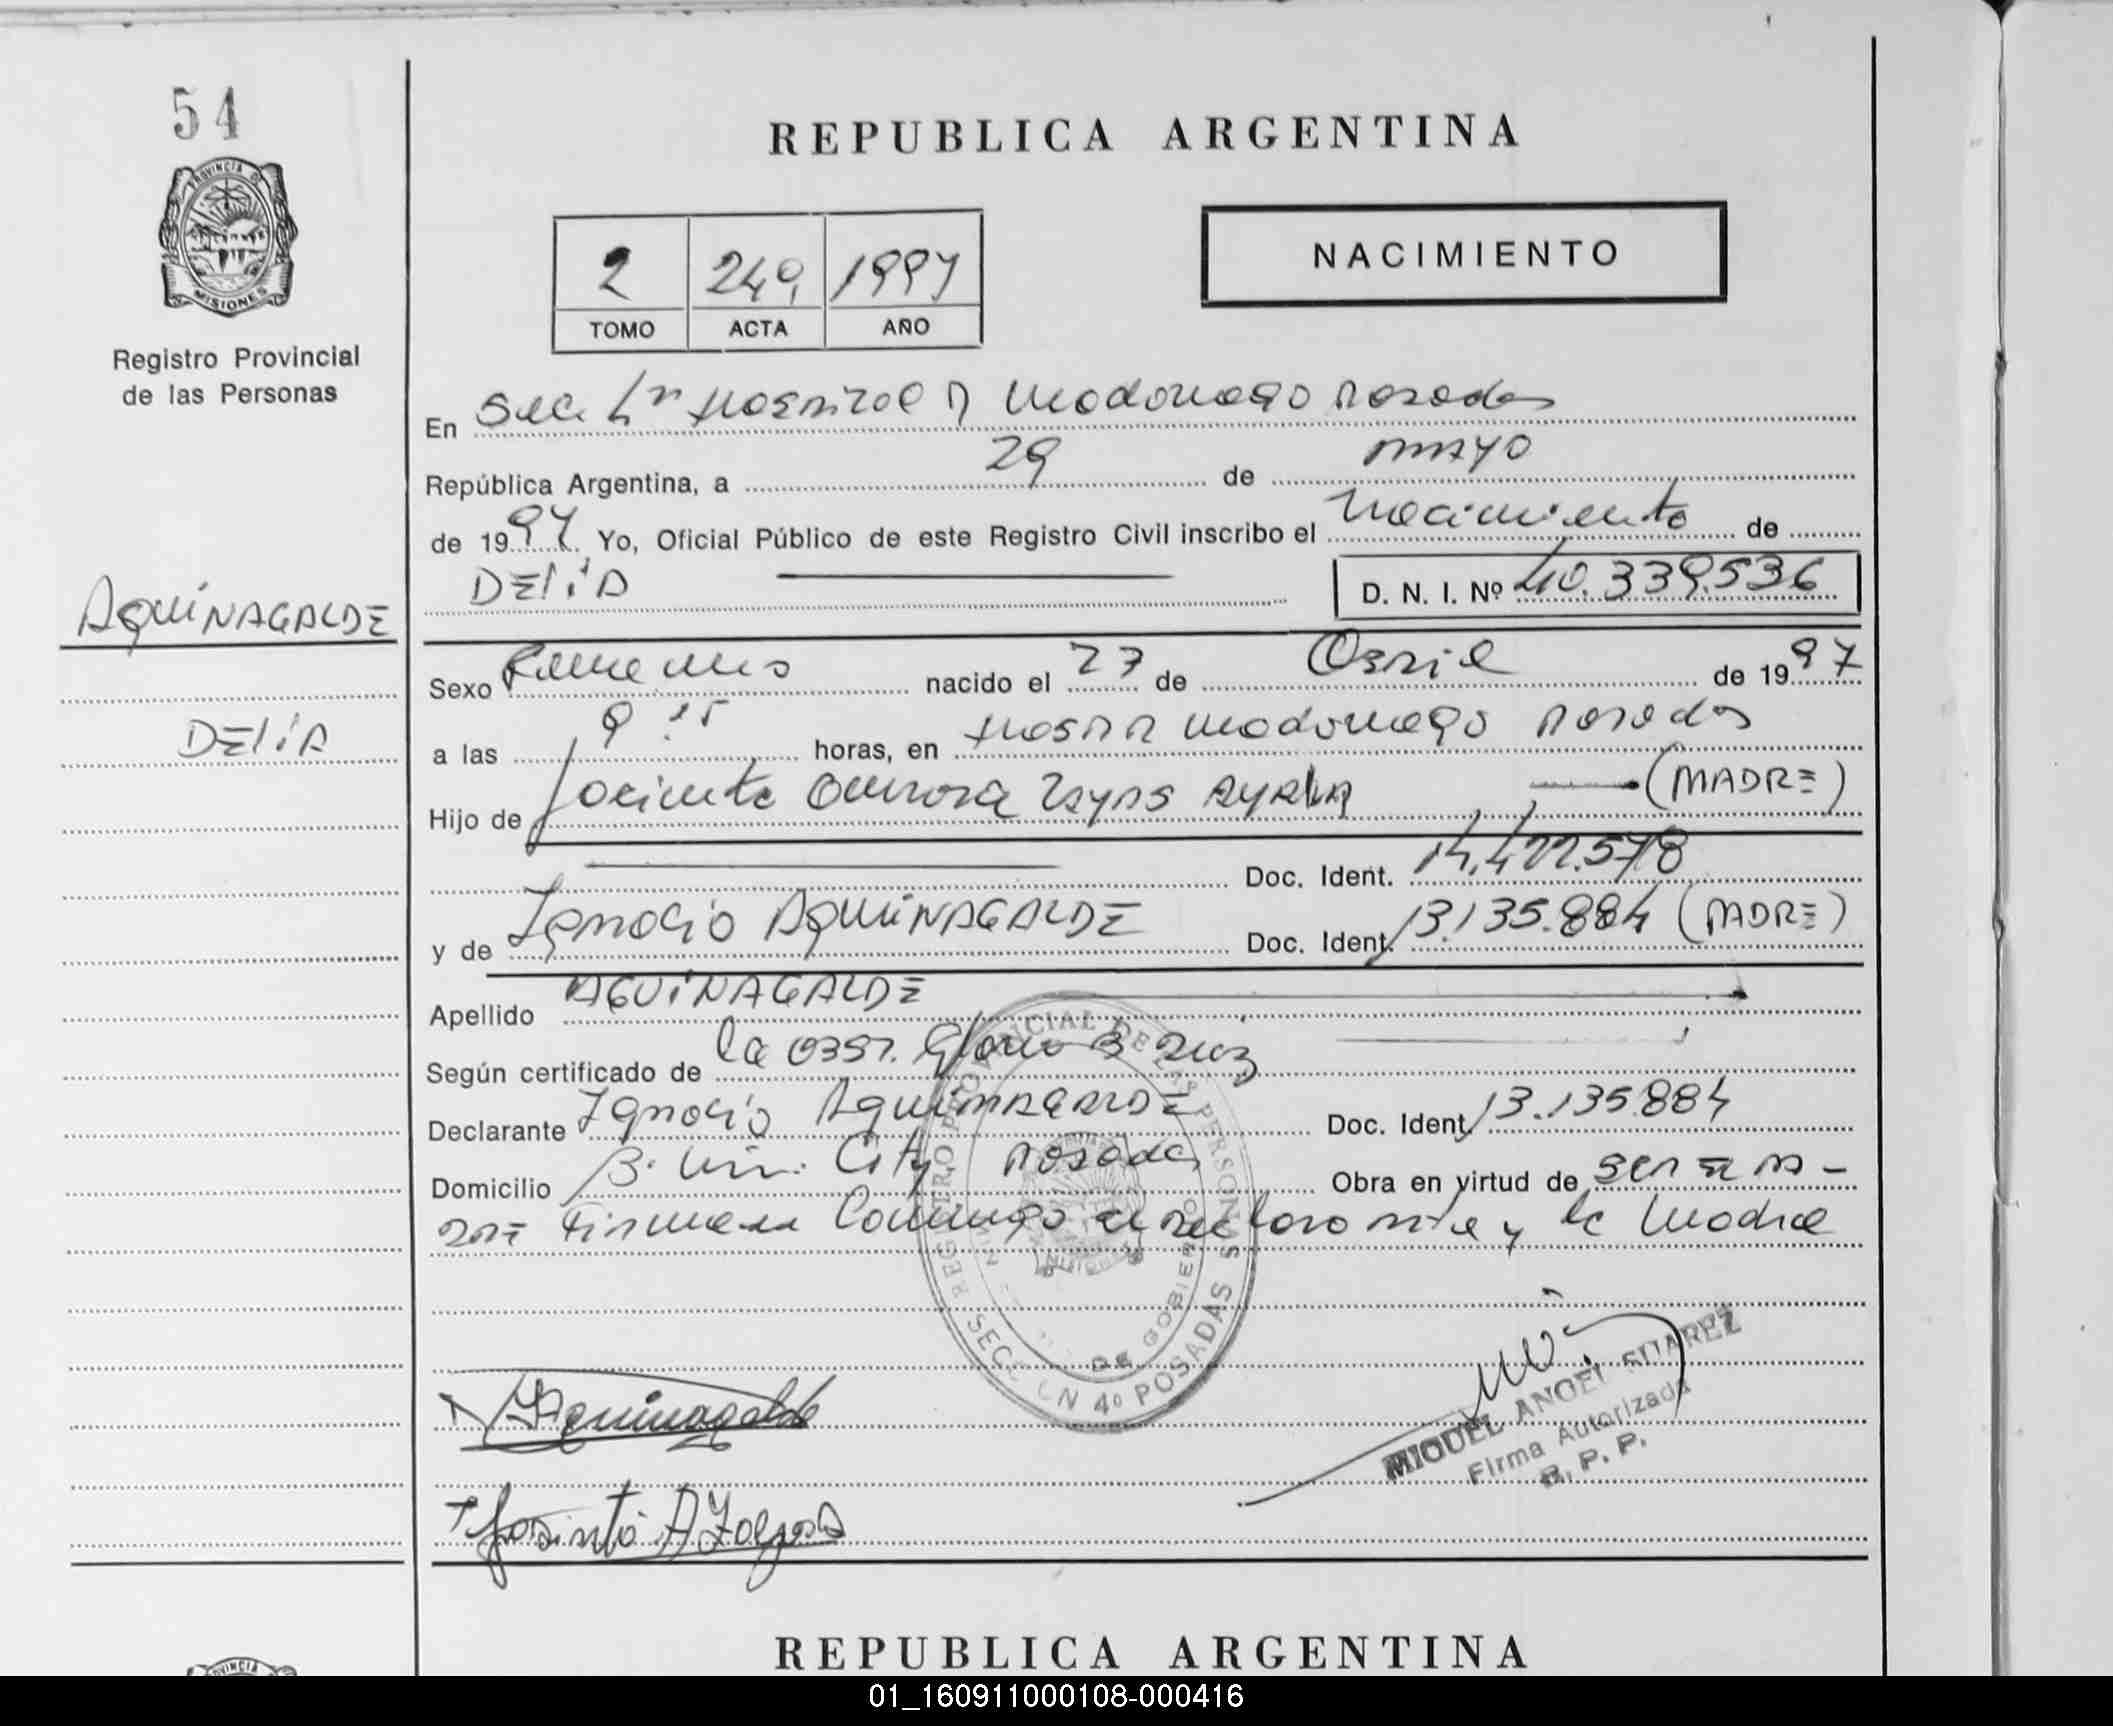 54
PROVINCIA DE
MISIONES
Registro Provincial
de las Personas
REPUBLICA ARGENTINA
2 249 1997
TOMO ACTA AÑO
NACIMIENTO
En Secc 4ta Hospital R Madariaga Posadas
República Argentina, a 29 de mayo
de 1997 Yo, Oficial Público de este Registro Civil inscribo el Nacimiento de
DEliA D. N. I. Nº 40.339.536
AGUINAGALDE
DEliA
Sexo Femenino nacido el 27 de Abril de 1997
a las 9:15 horas, en Hosp R Madariaga Posadas
Hijo de Jacinta Aurora Zayas AYALA (MADRE)
Doc. Ident. 14.422.578
y de Ignacio AGUINAGALDE Doc. Ident. 13.135.884 (PADRE)
Apellido AGUINAGALDE
Según certificado de la Obst. Gloria B
Declarante Ignacio AGUINAGALDE Doc. Ident. 13.135.884
Domicilio B. City Posadas Obra en virtud de
Firman conmigo el declarante y la Madre
REGISTRO PROVINCIAL DE LAS PERSONAS
DE GOBIERNO
SECCION 4º POSADAS
Aguinagalde
MIGUEL ANGEL SUAREZ
Firma Autorizada
R. P. P.
Jacinta A Zayas
REPUBLICA ARGENTINA
PROVINCIA
01_160911000108-000416